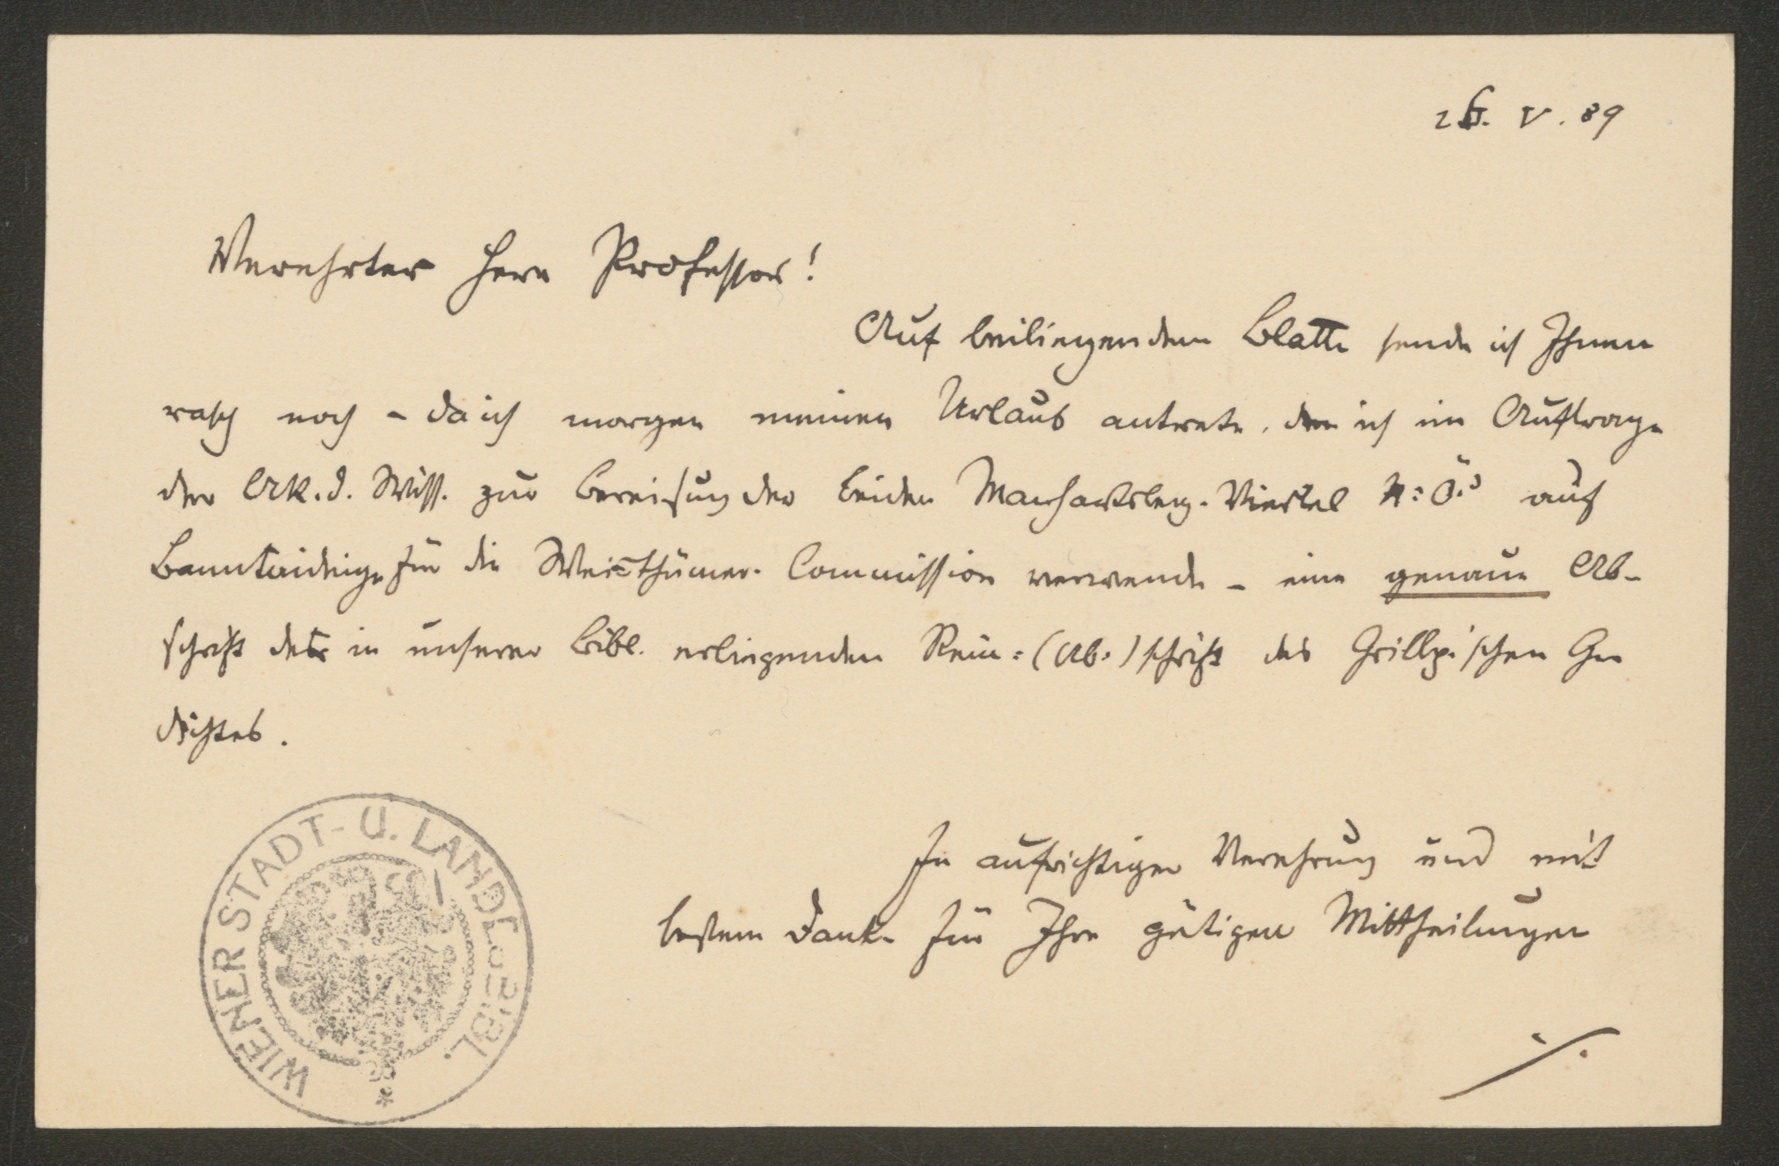 26. V. 89
Verehrter Herr Professor!
Auf beiliegendem Blatte sende ich Ihnen
rasch noch – da ich morgen meinen Urlaub antrete, den ich im Auftrage
der Ak. d. Wiss. zur Bereisung der beiden Manhartsberg-Viertel N:Ö.s auf
Banntaidinge für die Weisthümer-Commission verwende – eine genaue Ab-
schrift der in unserer Bibl. erliegenden Rein-(Ab-)schrift des Grillp.'schen Ge
dichtes.
In aufrichtiger Verehrung und mit
bestem Danke für Ihre gütigen Mittheilungen
WIENER STADT- U. LANDESBIBL.